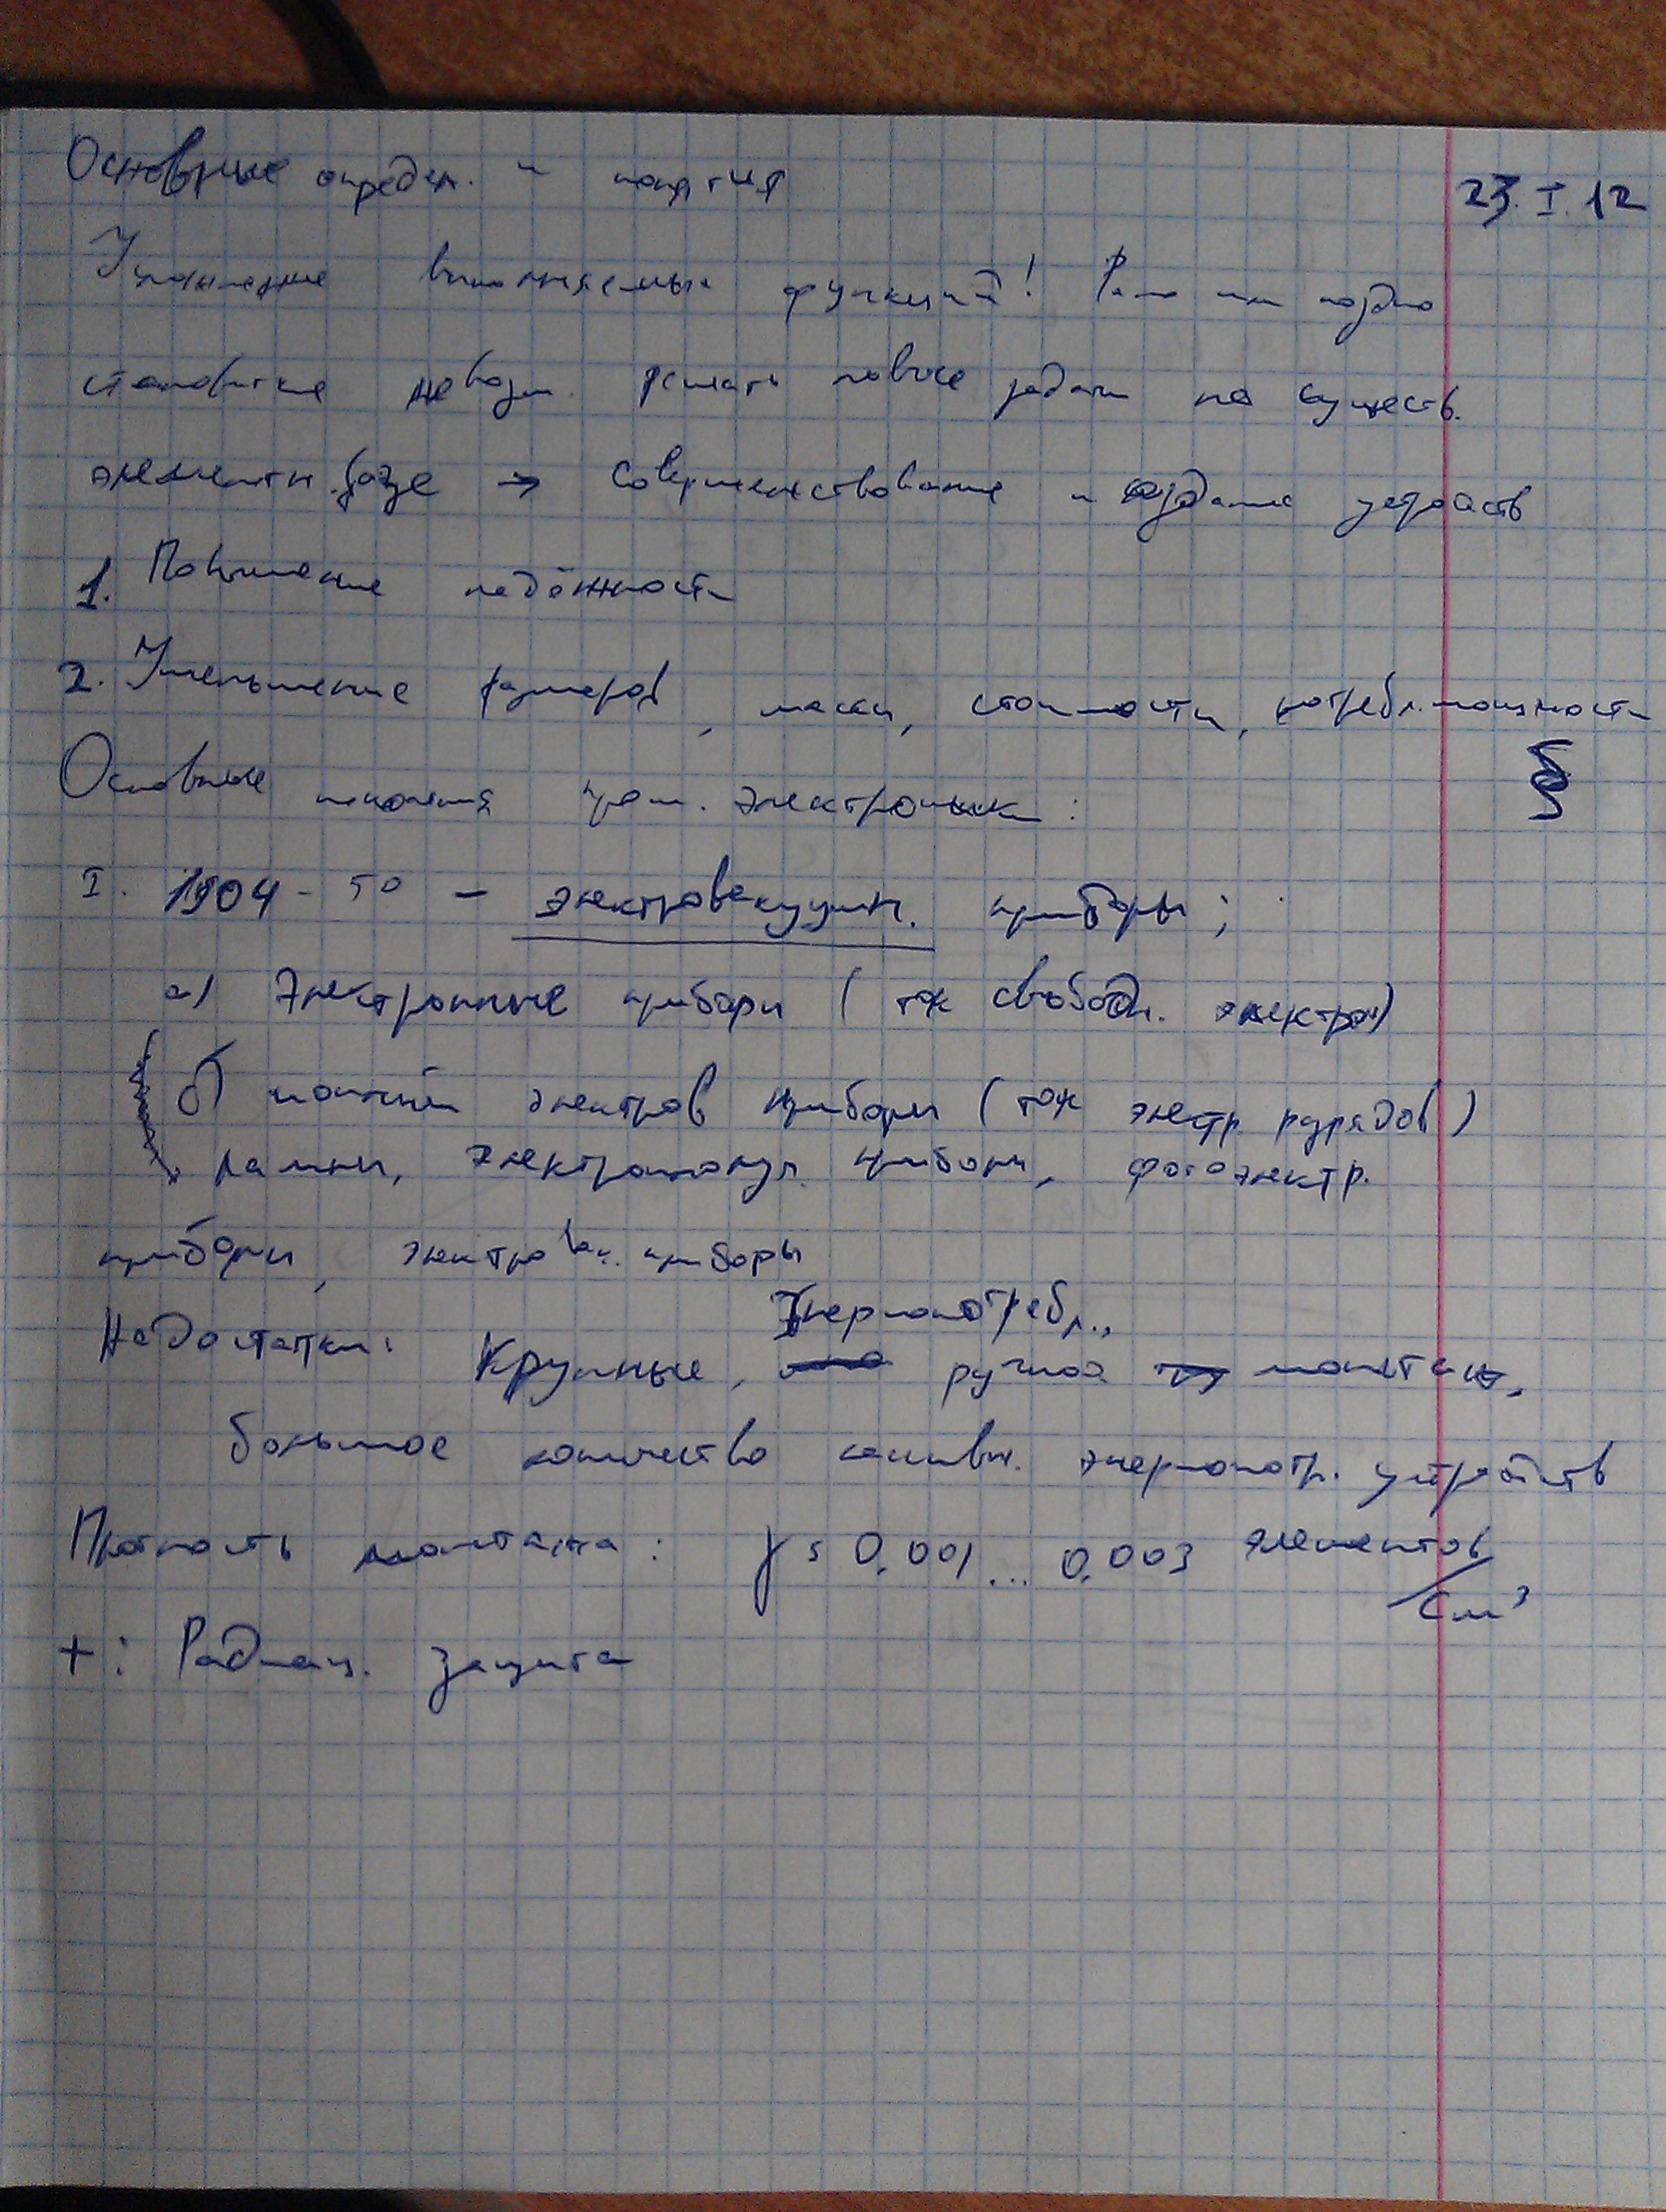 Основные определ. и понятия
23.I.12
Улучшение выполняемых функций! Рано или поздно
становится невозм. решать новые задачи на существ.
элементн. базе → Совершенствование и создание устройств
1. Повышение надёжности
2. Уменьшение размеров, массы, стоимости, потребл. мощности
Основные поколения пром. электроники:
§
I. 1904 - 50 - электровакуумн. приборы;
а) Электронные приборы (ток свободн. электрон)
б) электров приборы (ток электр. разрядов)
лампы, приборы, фотоэлектр.
приборы, электровак. приборы
Энергопотребл.,
Недостатки: Крупные, ручной монтаж,
большое количество пассивн. энергопотр. устройств
Плотность монтажа: γ = 0,001 ... 0,003 элементов/см³
+: Радиац. защита